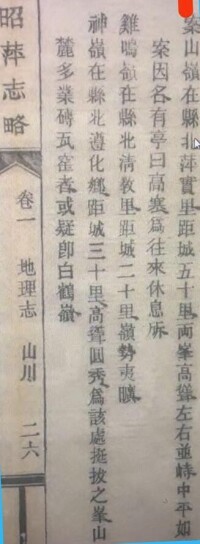 案山嶺在縣北萍實里距城五十里兩峯高聳左右並峙中平如
案因名有亭曰高寒爲往來休息所
雞鳴嶺在縣北清教里距城二十里嶺勢夷曠
神嶺在縣北遵化鄉距城三十里高聳圓秀爲該處挺拔之峯山
麓多業磚瓦窰者或疑卽白鶴嶺
昭萍志略
卷一 地理志 山川 二六